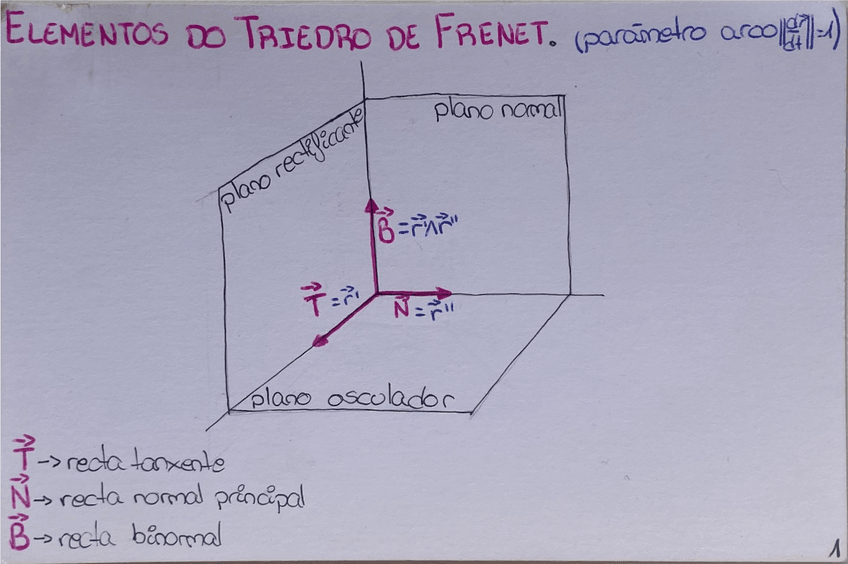 ELEMENTOS DO TRIEDRO DE FRENET. (parámetro arco ||dr⃗/dt||=1)
plano normal
plano rectificante
B⃗=r⃗'∧r⃗''
T⃗=r⃗'
N⃗=r⃗''
plano osculador
T⃗→recta tanxente
N⃗→recta normal principal
B⃗→recta binormal
1